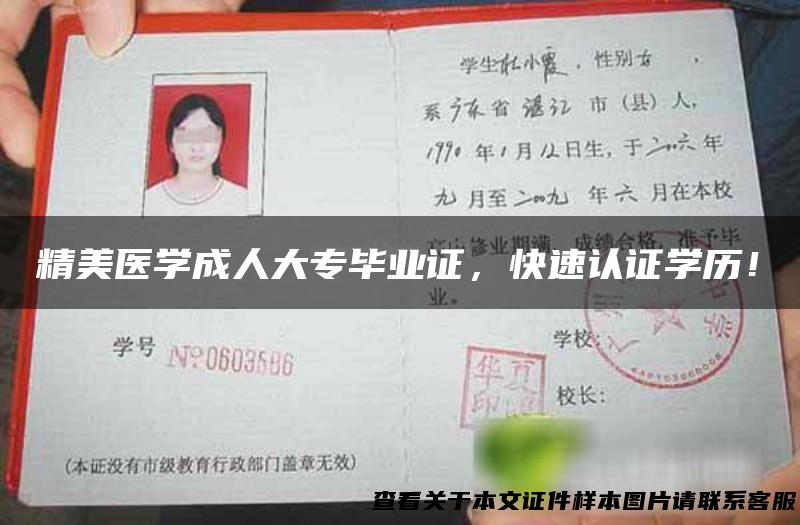 学生杜小霞，性别女，
系广东省湛江市（县）人，
1990年1月12日生，于二〇〇六年
九月至二〇〇九年六月在本校
修业期满，成绩合格，准予毕
业。
精美医学成人大专毕业证，快速认证学历！
学号 No:0603586
学校：
华夏
印
校长：
(本证没有市级教育行政部门盖章无效)
查看关于本文证件样本图片请联系客服